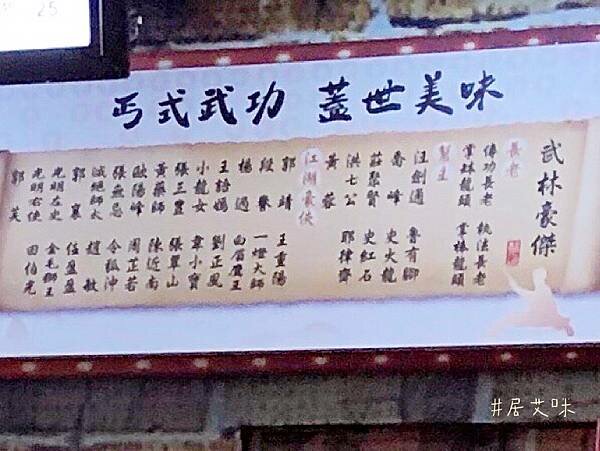 25
丐式武功 蓋世美味
武林豪傑
長老
傳功長老 執法長老
掌缽龍頭 掌棒龍頭
幫主
汪劍通 魯有腳
喬峰 史火龍
莊聚賢 史紅石
洪七公 耶律齊
黃蓉
江湖豪俠
郭靖 王重陽
段譽 一燈大師
楊過 白眉鷹王
王語嫣 劉正風
小龍女 韋小寶
張三豐 張翠山
黃藥師 陳近南
歐陽峰 周芷若
張無忌 令狐沖
滅絕師太 趙敏
郭襄 任盈盈
光明左使 金毛獅王
光明右使 田伯光
郭芙
#居艾味